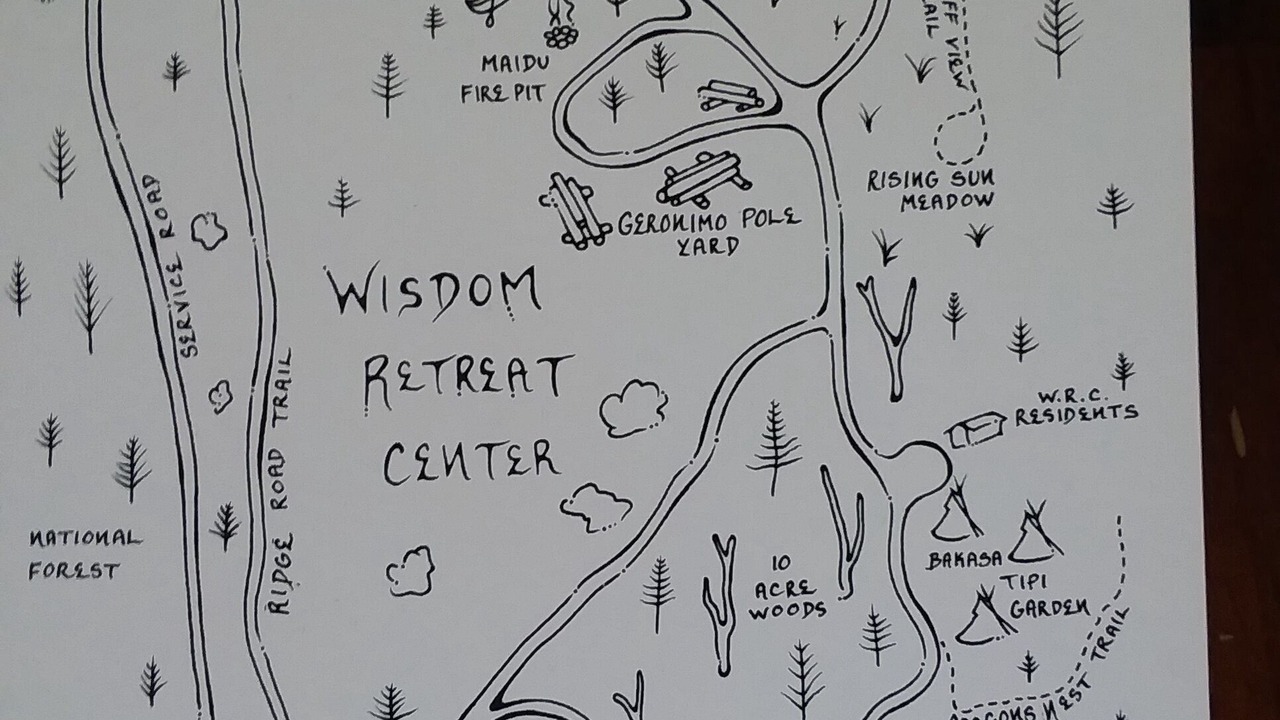 MAIDU
FIRE PIT
FF VIEW
TRAIL
RISING SUN
MEADOW
GERONIMO POLE
YARD
SERVICE ROAD
RIDGE ROAD TRAIL
WISDOM
RETREAT
CENTER
W.R.C.
RESIDENTS
NATIONAL
FOREST
10
ACRE
WOODS
BAKASA
TIPI
GARDEN
NEST TRAIL